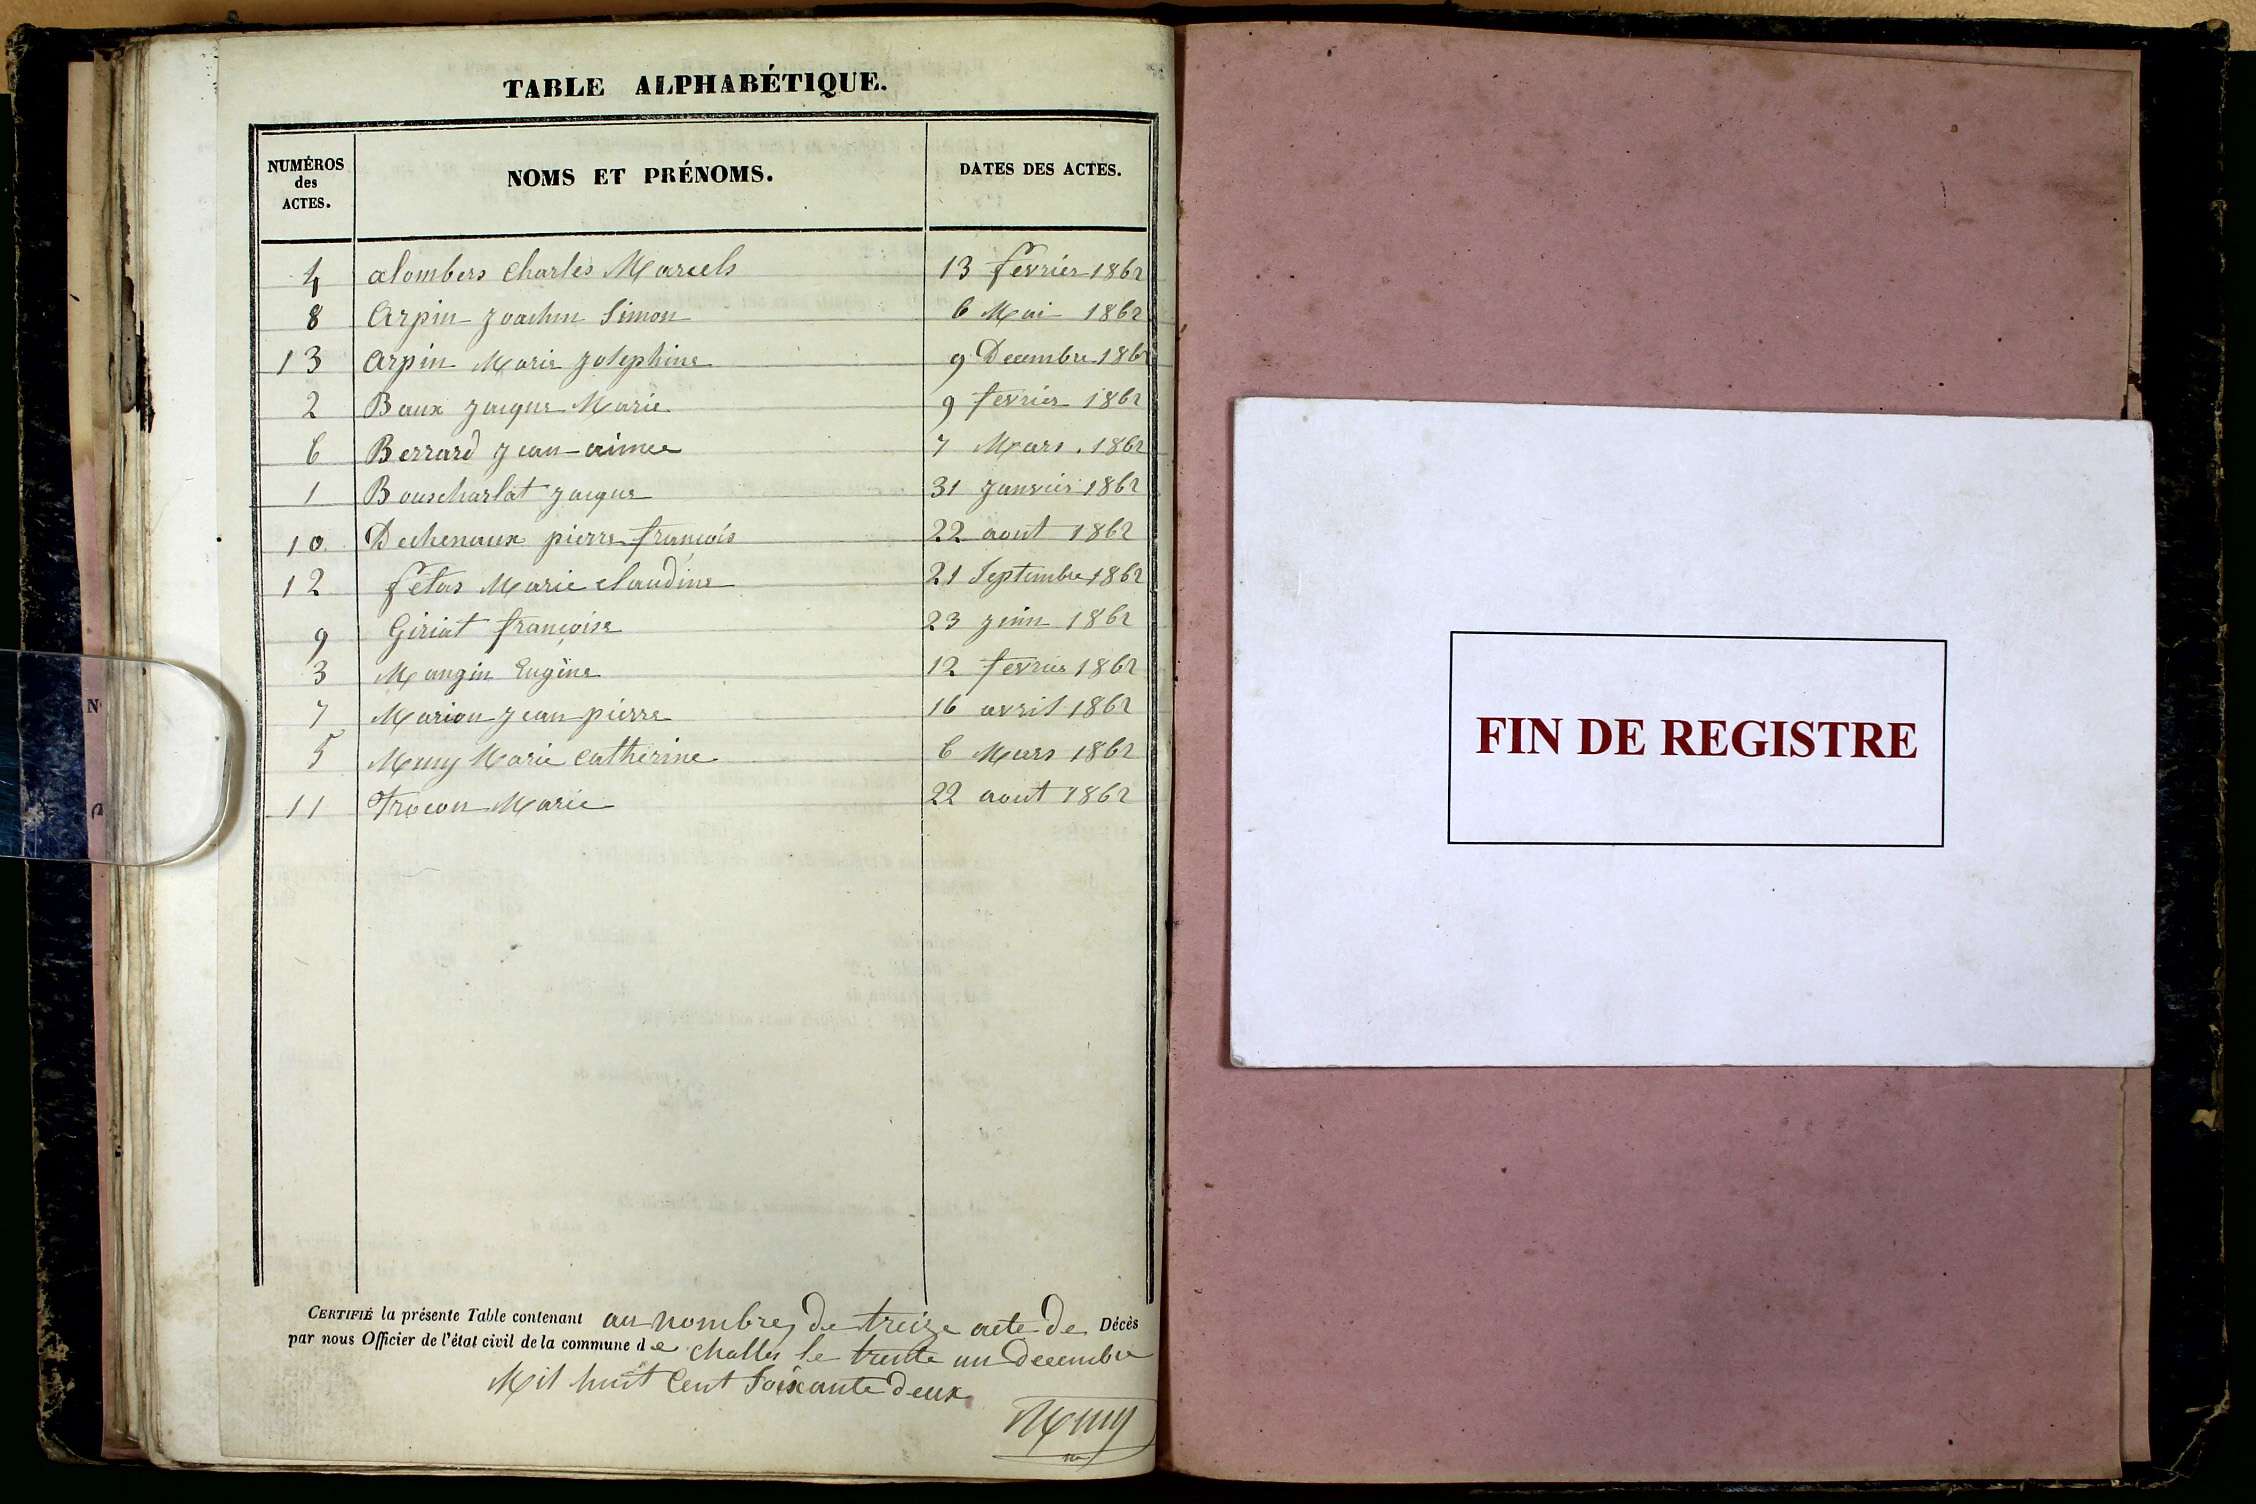 TABLE ALPHABÉTIQUE.
NUMÉROS des ACTES. NOMS ET PRÉNOMS. DATES DES ACTES.
4 alombers Charles Marcels 13 fevrier 1862
8 Arpin Joachim Simon 6 Mai 1862
13 Arpin Marie Josephine 9 Decembre 186
2 Baux Jacque Marie 9 fevrier 1862
6 Berrard Jean-aimee 7 Mars . 1862
1 Bouscharlat Jacque 31 Janvier 1862
10 Duchenaux pierre françois 22 aout 1862
12 fétas Marie claudine 21 Septembre 1862
9 Giriat françoise 23 Juin 1862
3 Mangin Eugène 12 fevrier 1862
7 Marion Jean pierre 16 avril 1862
5 Muny Marie Catherine 6 Mars 1862
11 Trocon Marie 22 aout 1862
CERTIFIÉ la présente Table contenant au nombre de treize acte de Décès
par nous Officier de l'état civil de la commune de challes le trente un Decembre
Mil huit Cent Soixante deux
Muny
N
FIN DE REGISTRE